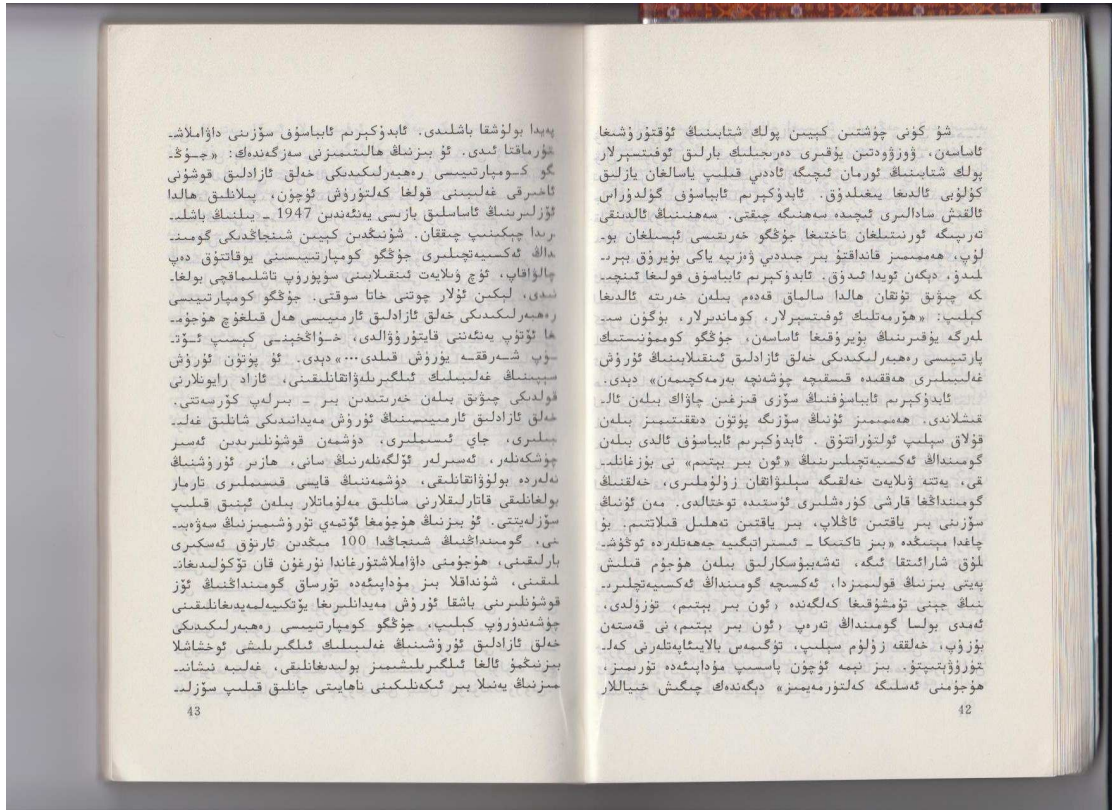 شۇ كۈنى چۈشتىن كېيىن پولك شتابىنىڭ ئۇقتۇرۇشىغا
ئاساسەن، ۋوزۋودتىن يۇقىرى دەرىجىلىك بارلىق ئوفىتسېرلار
پولك شتابىنىڭ ئورمان ئىچىگە ئاددىي قىلىپ ياسالغان يازلىق
كۇلۇبى ئالدىغا يىغىلدۇق. ئابدۇكېرىم ئابباسوف گۈلدۈراس
ئالقىش سادالىرى ئىچىدە سەھنىگە چىقتى. سەھنىنىڭ ئالدىنقى
تەرىپىگە ئورنىتىلغان تاختىغا جۇڭگو خەرىتىسى ئېسىلغان بو-
لۇپ، ھەممىمىز قانداقتۇ بىر جىددىي ۋەزىپە ياكى بۇيرۇق بېرى-
لىدۇ، دېگەن ئويدا ئىدۇق. ئابدۇكېرىم ئابباسوف قولىغا ئىنچى-
كە چىۋىق تۇتقان ھالدا سالماق قەدەم بىلەن خەرىتە ئالدىغا
كېلىپ: «ھۆرمەتلىك ئوفىتسېرلار، كوماندىرلار، بۈگۈن سى-
لەرگە يۇقىرىنىڭ بۇيرۇقىغا ئاساسەن، جۇڭگو كوممۇنىستىك
پارتىيىسى رەھبەرلىكىدىكى خەلق ئازادلىق ئىنقىلابىنىڭ ئۇرۇش
غەلىبىلىرى ھەققىدە قىسقىچە چۈشەنچە بەرمەكچىمەن» دېدى.
ئابدۇكېرىم ئابباسوفنىڭ سۆزى قىزغىن چاۋاك بىلەن ئال-
قىشلاندى. ھەممىمىز ئۇنىڭ سۆزىگە پۈتۈن دىققىتىمىز بىلەن
قۇلاق سېلىپ ئولتۇراتتۇق . ئابدۇكېرىم ئابباسوف ئالدى بىلەن
گومىنداڭ ئەكسىيەتچىلىرىنىڭ «ئون بىر بېتىم» نى بۇزغانلى-
قى، يەتتە ۋىلايەت خەلقىگە سېلىۋاتقان زۇلۇملىرى، خەلقنىڭ
گومىنداڭغا قارشى كۈرەشلىرى ئۈستىدە توختالدى. مەن ئۇنىڭ
سۆزىنى بىر ياقتىن ئاڭلاپ، بىر ياقتىن تەھلىل قىلاتتىم. بۇ
چاغدا مېنىڭدە «بىز تاكتىكا - ئىستراتېگىيە جەھەتلەردە ئوڭۇش-
لۇق شارائىتقا ئىگە، تەشەببۇسكارلىق بىلەن ھۇجۇم قىلىش
پەيتى بىزنىڭ قولىمىزدا، ئەكسىچە گومىنداڭ ئەكسىيەتچىلىرى-
نىڭ جېنى تۇمشۇقىغا كەلگەندە ‹ئون بىر بېتىم› تۈزۈلدى،
ئەمدى بولسا گومىنداڭ تەرەپ ‹ئون بىر بېتىم› نى قەستەن
بۇزۇپ، خەلققە زۇلۇم سېلىپ، تۈگىمەس بالايىئاپەتلەرنى كەل-
تۈرۈۋېتىپتۇ. بىز نېمە ئۈچۈن پاسسىپ مۇداپىئەدە تۇرىمىز،
ھۇجۇمنى ئەسلىگە كەلتۈرمەيمىز» دېگەندەك چىگىش خىياللار
42
پەيدا بولۇشقا باشلىدى. ئابدۇكېرىم ئابباسوف سۆزىنى داۋاملاش-
تۇرماقتا ئىدى. ئۇ بىزنىڭ ھالىتىمىزنى سەزگەندەك: «جۇڭ-
گو كومپارتىيىسى رەھبەرلىكىدىكى خەلق ئازادلىق قوشۇنى
ئاخىرقى غەلىبىنى قولغا كەلتۈرۈش ئۈچۈن، پىلانلىق ھالدا
ئۆزلىرىنىڭ ئاساسلىق بازىسى يەنئەندىن 1947 - يىلنىڭ باشلى-
رىدا چېكىنىپ چىققان. شۇنىڭدىن كېيىن شىنجاڭدىكى گومىن-
داڭ ئەكسىيەتچىلىرى جۇڭگو كومپارتىيىسىنى يوقاتتۇق دەپ
چالۋاقاپ، ئۈچ ۋىلايەت ئىنقىلابىنى سۈپۈرۈپ تاشلىماقچى بولغا-
نىدى، لېكىن ئۇلار چوتنى خاتا سوقتى. جۇڭگو كومپارتىيىسى
رەھبەرلىكىدىكى خەلق ئازادلىق ئارمىيىسى ھەل قىلغۇچ ھۇجۇم-
غا ئۆتۈپ يەنئەننى قايتۇرۇۋالدى، خۇاڭخېنى كېسىپ ئۆت-
ۈپ شەرققە يۈرۈش قىلدى...» دېدى. ئۇ پۈتۈن ئۇرۇش
سېپىنىڭ غەلىبىلىك ئىلگىرىلەۋاتقانلىقىنى، ئازاد رايونلارنى
قولدىكى چىۋىق بىلەن خەرىتىدىن بىر - بىرلەپ كۆرسەتتى.
خەلق ئازادلىق ئارمىيىسىنىڭ ئۇرۇش مەيدانىدىكى شانلىق غەلى-
بىلىرى، جاي ئىسىملىرى، دۈشمەن قوشۇنلىرىدىن ئەسىر
چۈشكەنلەر، ئەسىرلەر ئۆلگەنلەرنىڭ سانى، ھازىر ئۇرۇشنىڭ
نەلەردە بولۇۋاتقانلىقى، دۈشمەننىڭ قايسى قىسىملىرى تارمار
بولغانلىقى قاتارلىقلارنى سانلىق مەلۇماتلار بىلەن ئېنىق قىلىپ
سۆزلەيتتى. ئۇ بىزنىڭ ھۇجۇمغا ئۆتمەي تۇرۇشىمىزنىڭ سەۋەبى-
نى، گومىنداڭنىڭ شىنجاڭدا 100 مىڭدىن ئارتۇق ئەسكىرى
بارلىقىنى، ھۇجۇمنى داۋاملاشتۇرغاندا نۇرغۇن قان تۆكۈلىدىغان-
لىقىنى، شۇنداقلا بىز مۇداپىئەدە تۇرساق گومىنداڭنىڭ ئۆز
قوشۇنلىرىنى باشقا ئۇرۇش مەيدانلىرىغا يۆتكىيەلمەيدىغانلىقىنى
چۈشەندۈرۈپ كېلىپ، جۇڭگو كومپارتىيىسى رەھبەرلىكىدىكى
خەلق ئازادلىق ئۇرۇشىنىڭ غەلىبىلىك ئىلگىرىلىشى ئوخشاشلا
بىزنىڭمۇ ئالغا ئىلگىرىلىشىمىز بولىدىغانلىقى، غەلىبە نىشانى-
مىزنىڭ يەنىلا بىر ئىكەنلىكىنى ناھايىتى جانلىق قىلىپ سۆزلى-
43